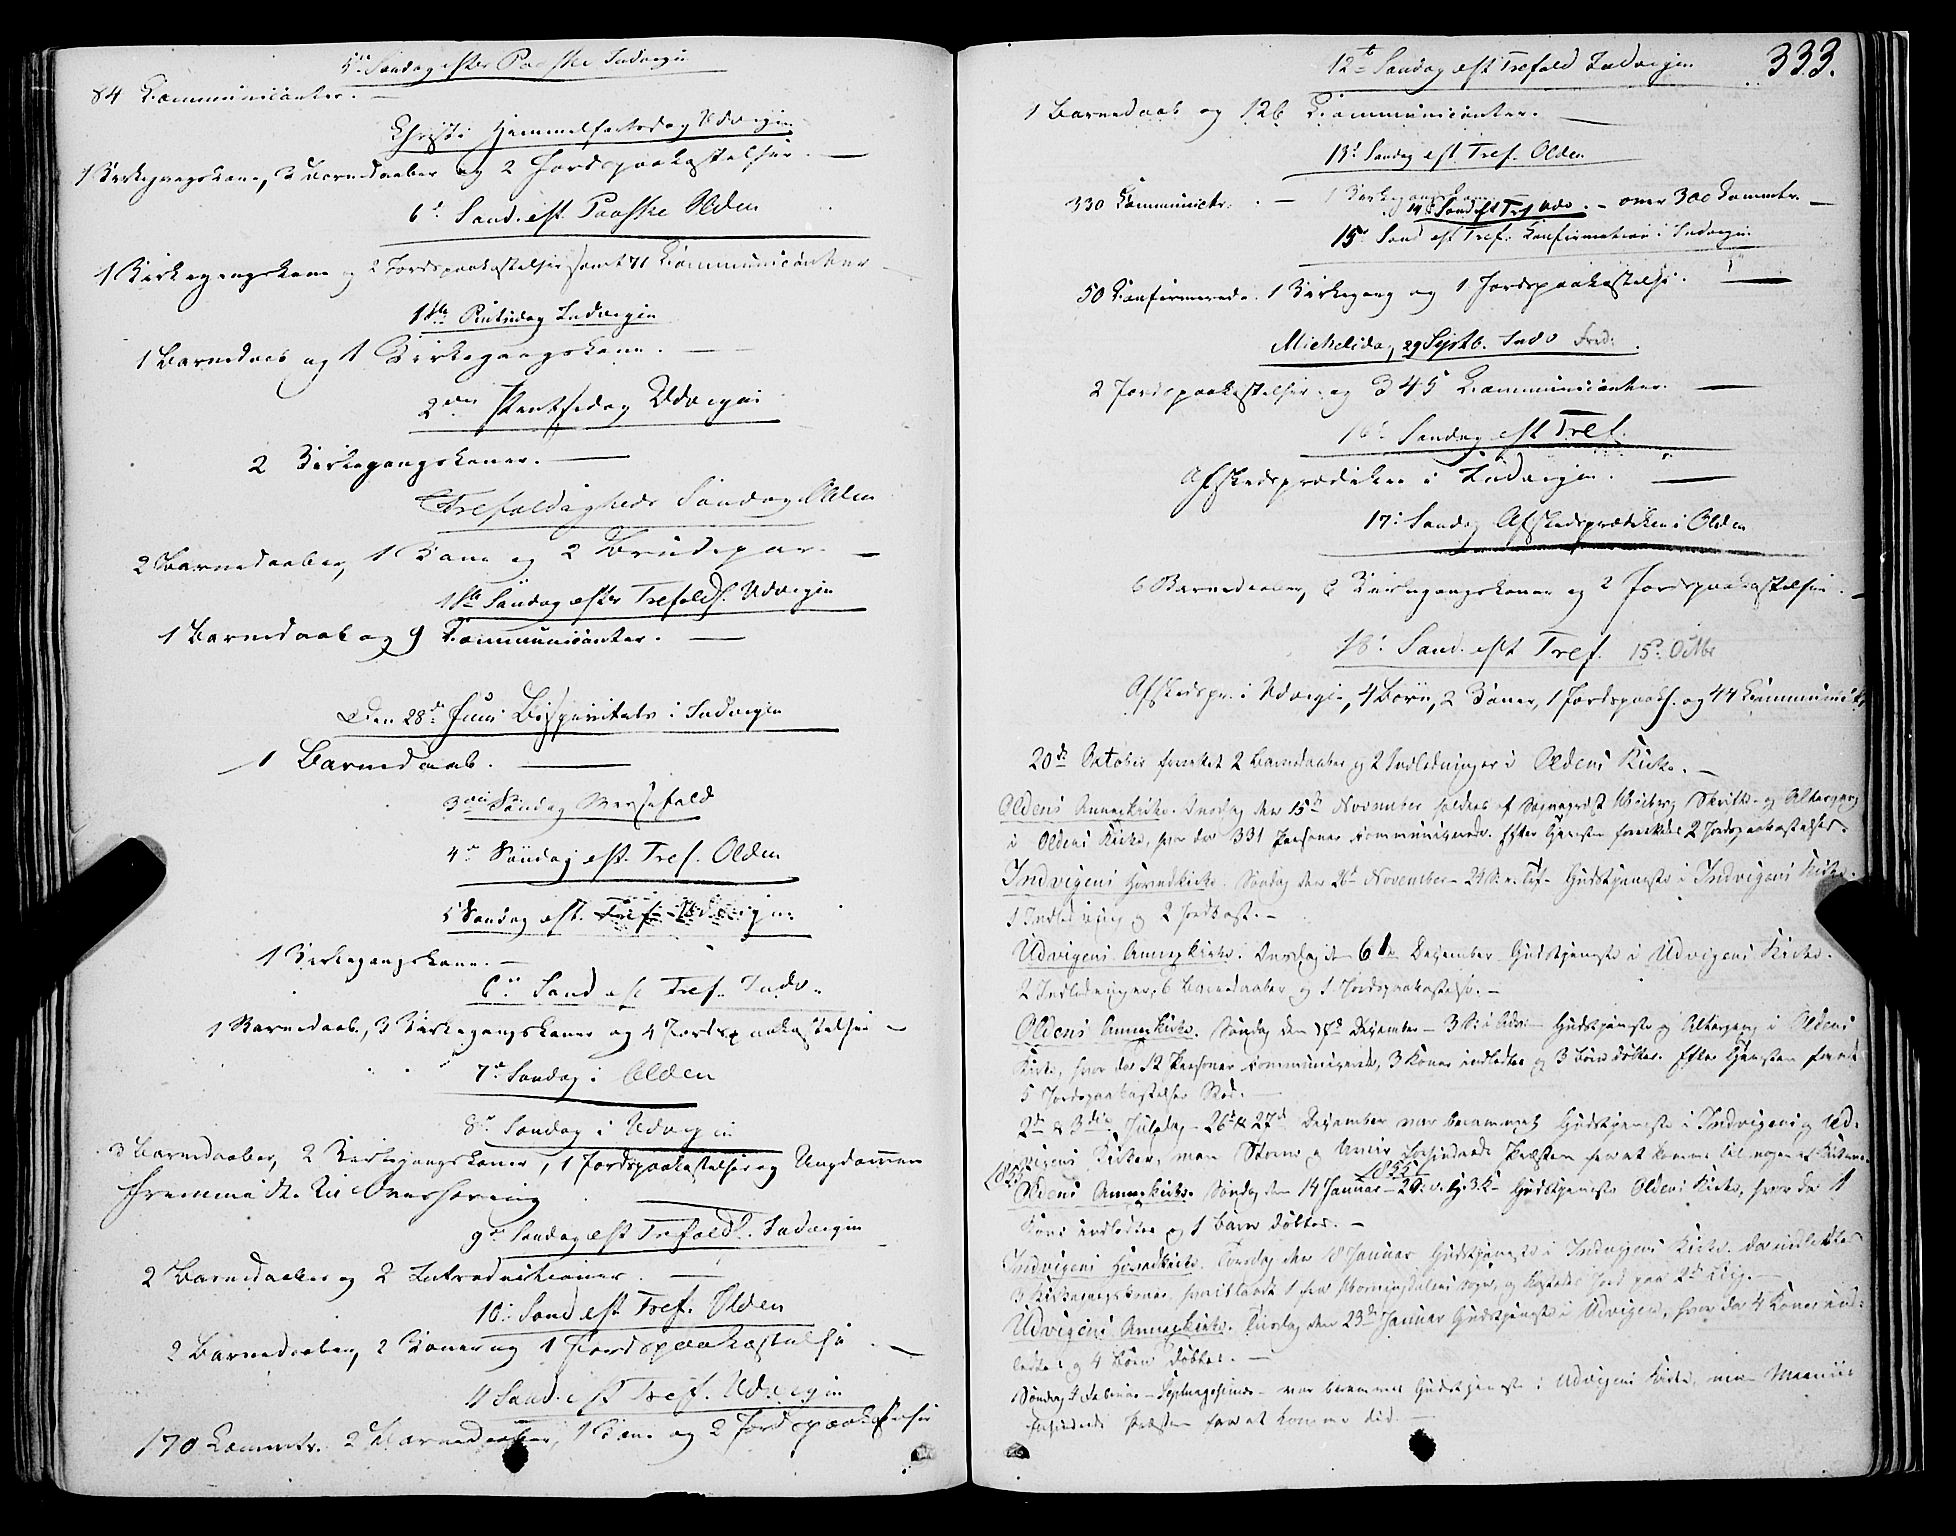 5te Søndag efter Paaske Indvigen
84 Communicanter. —
Christi Himmelfartsdag Udvigen
1 Kirkegangskone, 3 Barnedaaber og 2 Jordspaakastelser. —
6te Sønd. eft. Paaske Olden
1 Kirkegangskone og 2 Jordspaakastelser samt 71 Communicanter —
1ste Pintsedag Indvigen
1 Barnedaab og 1 Kirkegangskone. —
2den Pintsedag Udvigen
2 Kirkegangskoner. —
Trefoldigheds Søndag Olden
2 Barnedaaber, 1 Kone og 2 Brudepar. —
1ste Søndag efter Trefoldh. Udvigen
1 Barnedaab og 9 Communicanter. —
Den 28de Juni Bispevisitats i Indvigen
1 Barnedaab. —
3die Søndag Messefald
4de Søndag eft. Tref. Olden
5 Søndag eft. Tref. Udvigen
1 Kirkegangskone. —
6te Sønd eft Tref. Indv.
1 Barnedaab, 3 Kirkegangskoner og 4 Jordspaakastelser —
7de Søndag i Olden
8de Søndag i Udvigen
3 Barnedaaber, 2 Kirkegangskoner, 1 Jordspaakastelse og Ungdommen
fremmødte til Overhøring
9de Søndag eft Trefoldh. Indvigen
2 Barnedaaber og 2 Introductioner. —
10: Sønd eft Tref. Olden
2 Barnedaaber, 2 Koner og 1 Jordspaakastelse. —
11 Sønd. eft Tref. Udvigen
170 Commctr. 2 Barnedaaber, 1 Kone og 2 Jordspaakastelser
333.
12te Søndag eft Trefold Indvigen
1 Barnedaab og 126 Communicanter. —
13d Søndag eft. Tref. Olden
330 Communictr. — 1 Kirkegangskone
14d Sønd eft Tref Udv. — over 300 Commctr. —
15d Sønd eft Tref. Confirmation i Indvigen
50 Confirmerede. 1 Kirkegang og 1 Jordspaakastelse. —
Michelsdag, 29 Septb. Indv
2 Jordspaakastelser og 345 Communicanter. —
16d Søndag eft Tref.
Afskedsprædiken i Indvigen. —
17: Søndag Afskedsprædiken i Olden
6 Barnedaaber, 6 Kirkegangskoner og 2 Jordspaakastelser. —
18d Sønd. eft Tref. 15d Octbr
Afskedspr. i Udvigen, 4 Børn, 2 Koner, 1 Jordspaak. og 44 Communik.
20de Oktober forrettet 2 Barnedaaber og 2 Indledninger i Oldens Kirke. —
Oldens Annexkirke. Onsdag den 15de November holdtes af Sognepræst Skrifte- og Altergang
i Oldens Kirke, hvor der 331 Personer kommunicerede. Efter Tjenesten forrettedes 2 Jordspaakastelser.
Indvigens Hovedkirke. Søndag den 26d November - 24 S. e. Tref - Gudstjeneste i Indvigens Kirke.
1 Indledning og 2 Jordkast. —
Udvigens Annexkirke. Onsdag d. 6te December Gudstjeneste i Udvigens Kirke.
2 Indledninger, 6 Barnedaaber og 1 Jordspaakastelse. —
Oldens Annexkirke. Søndag den December — 3 S. i Adv. — Gudstjeneste og Altergang i Oldens
Kirke, hvor der 12 Personer kommunicerede, 3 Koner indledtes og 3 Børn døbtes. Efter Tjenesten
5 Jordspaakastelser Sted. —
2d & 3die Juledag - 26d & 27d December var berammet Gudstjeneste i Indvigens og Ud-
vigens Kirker, men Storm og Uveir forhindrede Præsten fra at komme til nogen af Kirkerne.
1855.
Oldens Annexkirke. Søndag den 14 Januar — 2 S. e. H. 3 K — Gudstjeneste Oldens Kirke, hvor der 1
Kone indledtes og 1 Barn døbtes. —
Indvigens Hovedkirke. Torsdag den 18 Januar Gudstjeneste i Indvigens Kirke. Der indledtes
3 Kirkegangskoner, hvoriblandt 1 fra Hornindalens Sogn, og kastedes Jord paa 2de Lig. —
Udvigens Annexkirke. Tirsdag den 23de Januar Gudstjeneste i Udvigen, hvor der 4 Koner ind-
ledtes og 4 Børn døbtes. —
Søndag 4 Februar — Septuagesima — var berammet Gudstjeneste i Udvigens Kirke, men
forhindrede Præsten fra at komme did. —